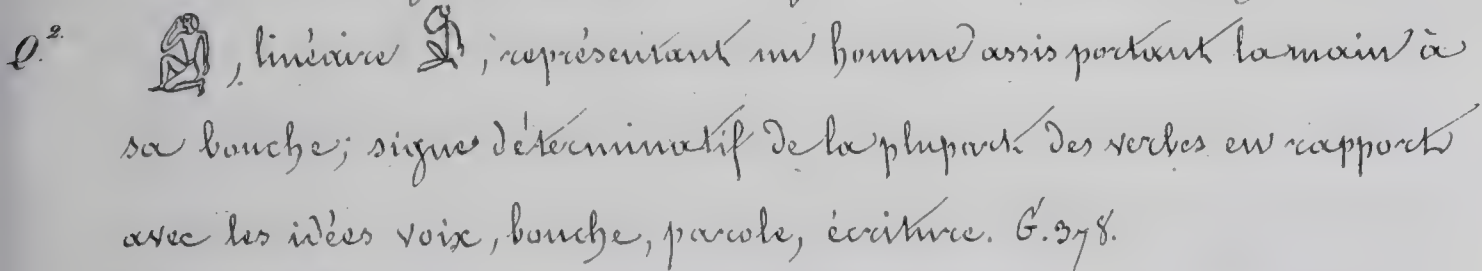 Q.² 𓀁, linéaire 𓀁, représentant un homme assis portant la main à
sa bouche; signe déterminatif de la plupart des verbes en rapport
avec les idées voix, bouche, parole, écriture. G. 378.